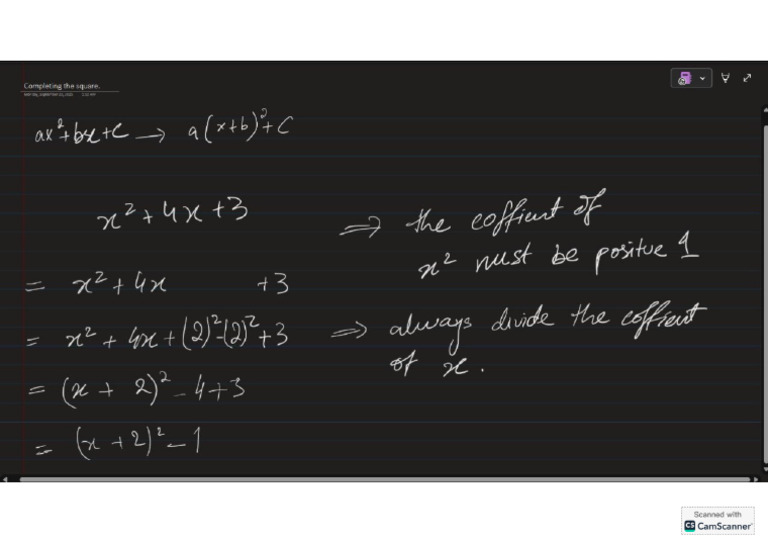 Completing the square.
ax²+bx+c → a(x+b)²+c
x²+4x+3
⇒ the coffient of
x² must be positive 1
= x²+4x +3
= x²+4x+(2)²-(2)²+3
⇒ always divide the coffient
of x.
= (x+2)²-4+3
= (x+2)²-1
Scanned with
CS CamScanner